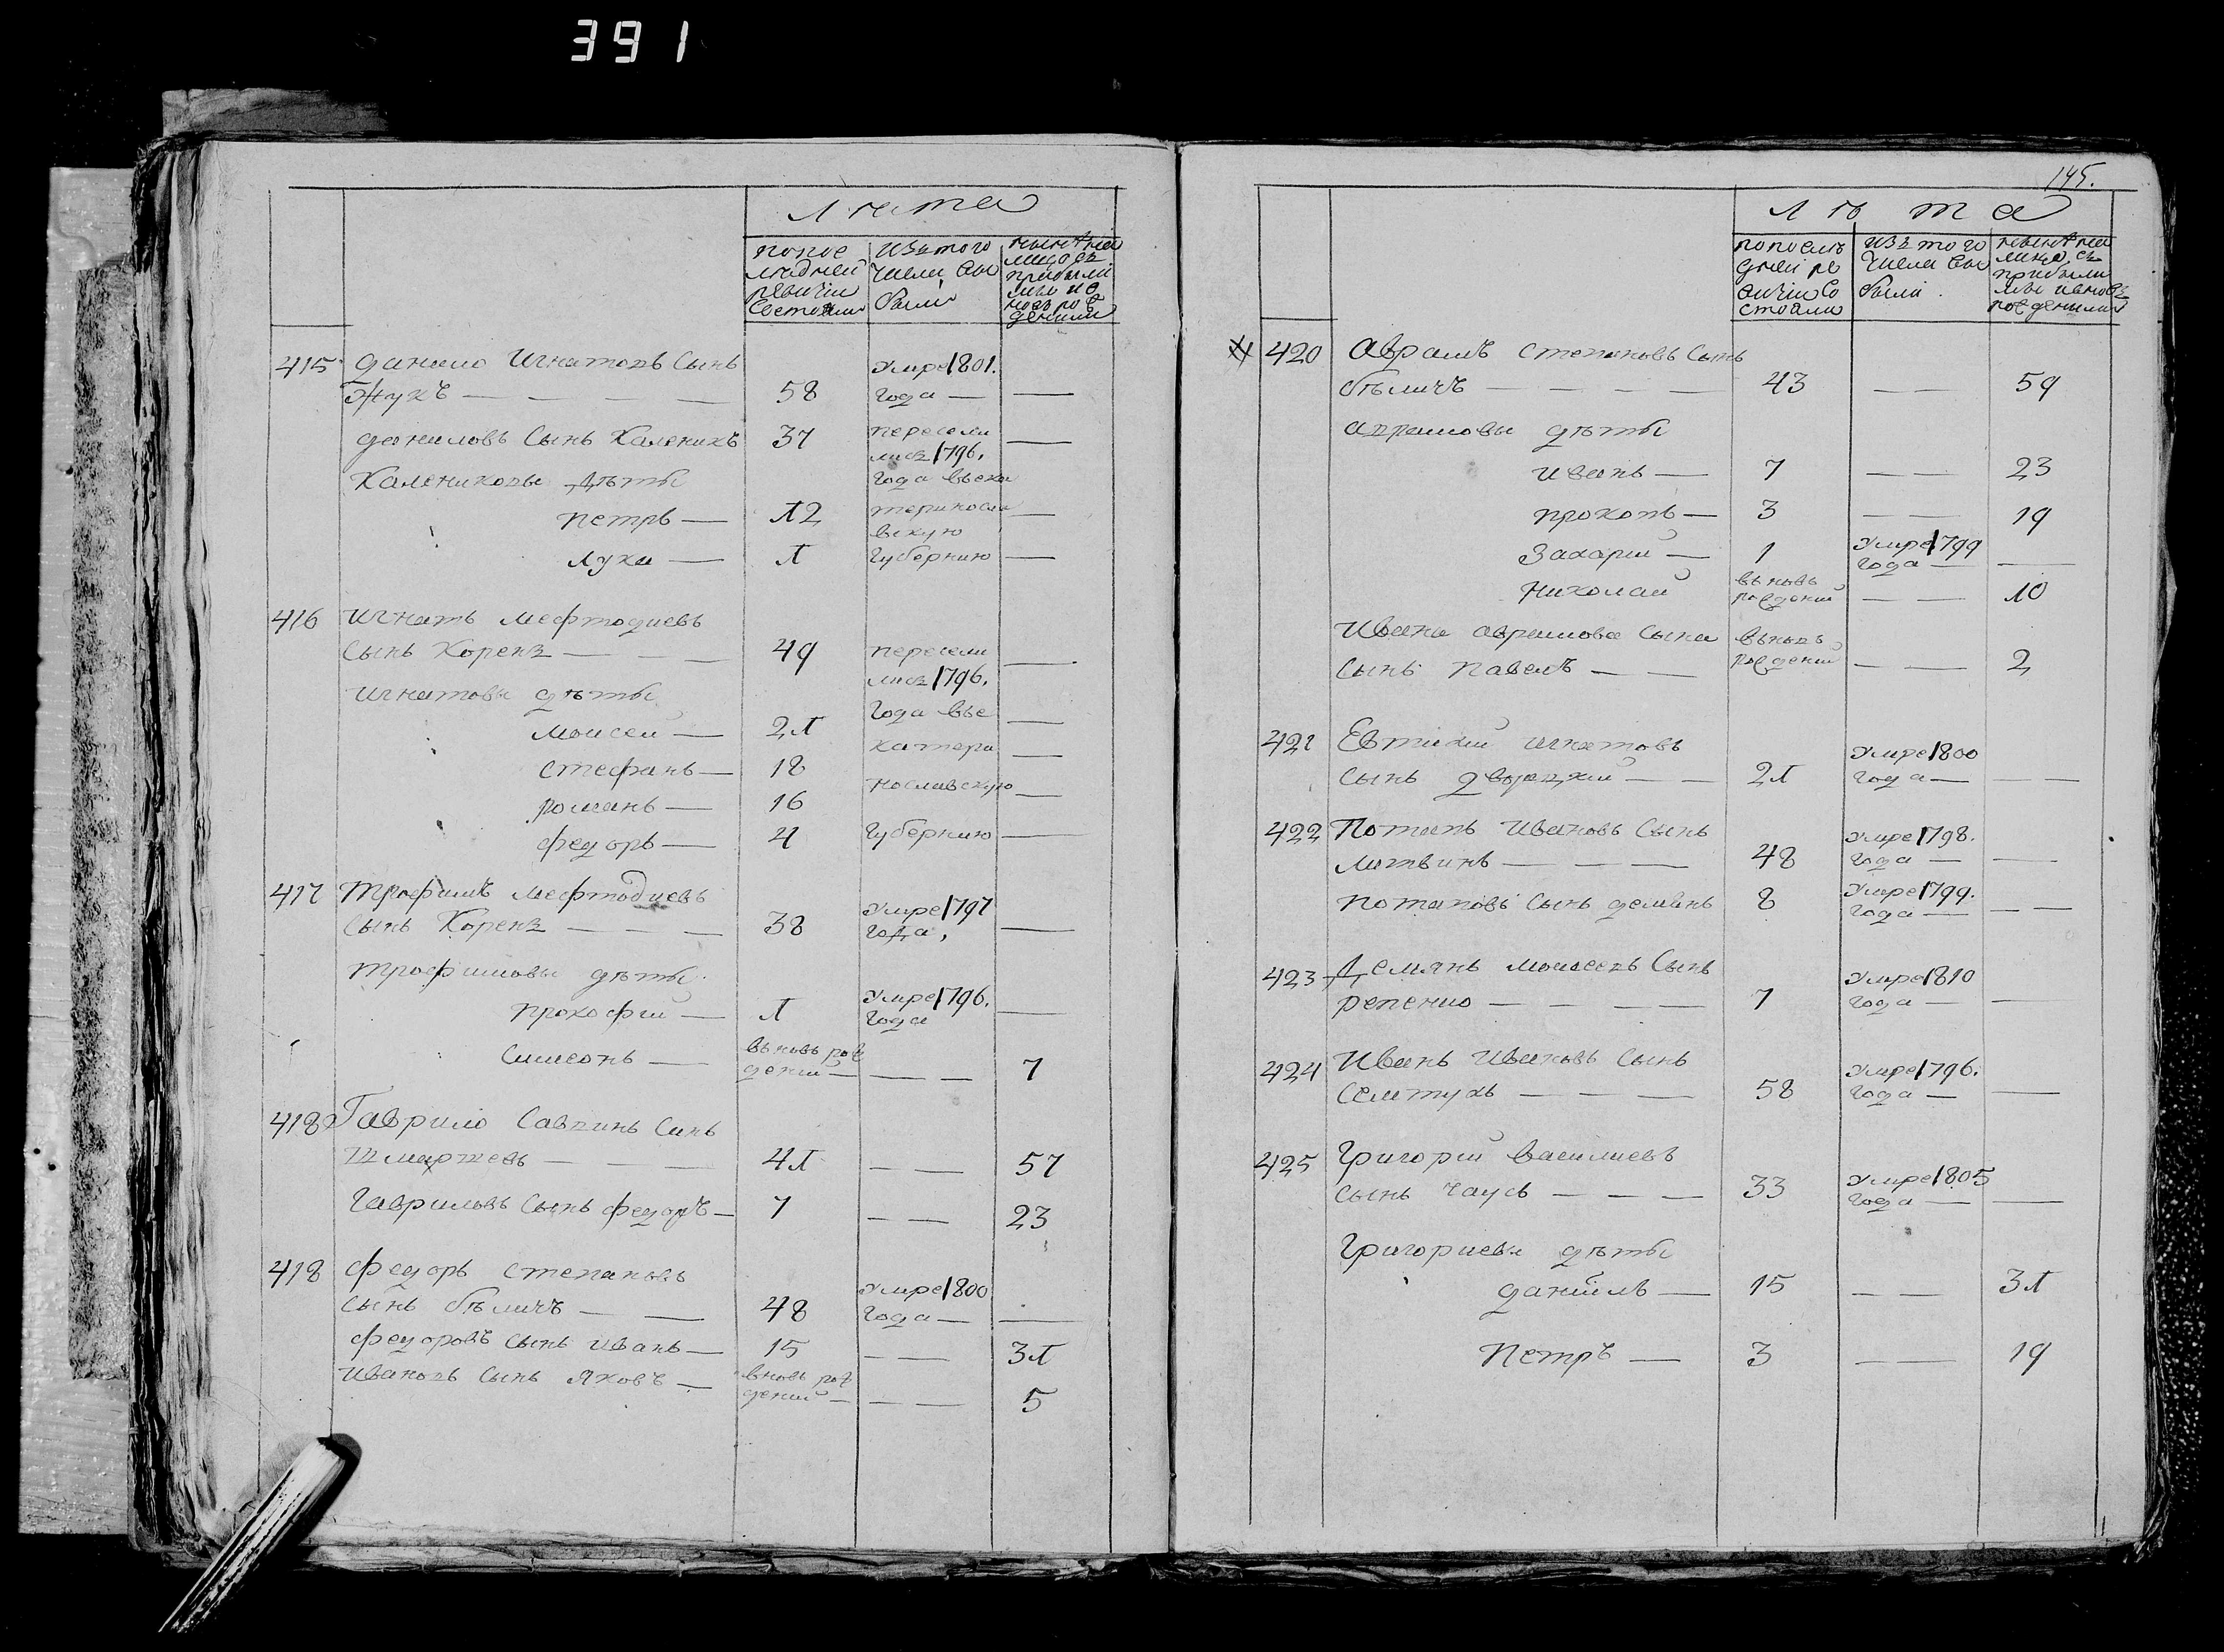 391
лѣта
попое
лѣдней
ревизии
Состояли
Изътого
числа вы
были
ныне на
лицо съ
прибыли
ми и в
новь рож
денными
415 данило Игнатовъ Сынъ
Жукъ — — — — 58 Умре 1801.
Года — —
даниловъ Сынъ Каленикъ 37 пересели
лись 1796.
Калениковы дѣты Года въека
петръ — 12 терносла
вскую
лука — 1 Губернию —
416 Игнатъ мефтодиевъ
Сынъ Коренъ — — — 49 пересели
лись 1796.
игнатовы дѣты Года вье
Моисей — 21
катери
стефанъ — 18
нославскую
романъ — 16
федоръ — 4 Губернию —
417 трофимъ мефтодиевъ
Сынъ Коренъ — — — 38 Умре 1797
Года, —
трофимовы дѣты
прокофий — 1 Умре 1796.
Года —
Симеонъ — вьновь рож
дений — — — 7
418 Гаврило Савинъ Синъ
— — — 41 — — 57
Гавриловъ Сынъ федоръ — 7 — — 23
418 федоръ степановъ
Сынъ бѣличъ — — 48 Умре 1800
Года — —
федоровъ Сынъ иванъ — 15 — — 31
Ивановъ Сынъ Яковъ — вновь рож
дений — — — 5
145.
лѣта
попослѣ
дней ре
визии Со
стояли
изъ того
числа вы
были
ныне на
лицо, съ
прибыли
ми ивновь
рожденными
420 Аврамъ степановъ Сынъ
бѣличъ — — — — 43 — — 59
аврамовы дѣты
иванъ — 7 — — 23
прокопъ — 3 — — 19
Захарий — 1 Умре 1799
Года — —
Николай вьновь
рождений — — 10
Ивана аврамова Сына вьновь
Сынъ павелъ — — рождений — — 2
421 Евтихий игнатовъ
Сынъ дворецкий — — 21 Умре 1800
Года — —
422 Потапъ Ивановъ Сынъ
литвинъ — — — 48 Умре 1798.
Года — —
потаповъ Сынъ демянъ 8 Умре 1799.
Года — — —
423 Демянъ моисеевъ Сынъ
репенио — — — — 7 Умре 1810
Года — —
424 Иванъ Ивановъ Сынъ
Семтухъ — — — 58 Умре 1796.
Года — —
425 Григорий василиевъ
Сынъ чаусъ — — — 33 Умре 1805
Года — —
Григориевы дѣты
даниилъ — 15 — — 31
Петръ — 3 — — 19